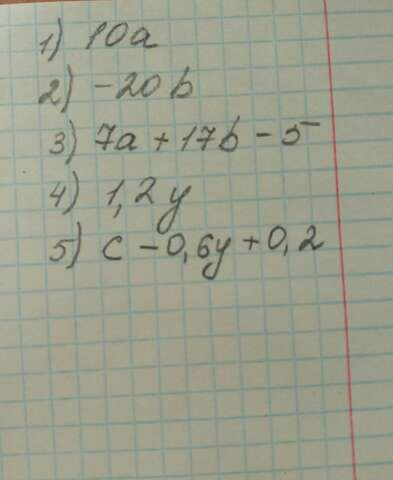 1) 10a
2) -20b
3) 7a + 17b - 5
4) 1,2y
5) c - 0,6y + 0,2